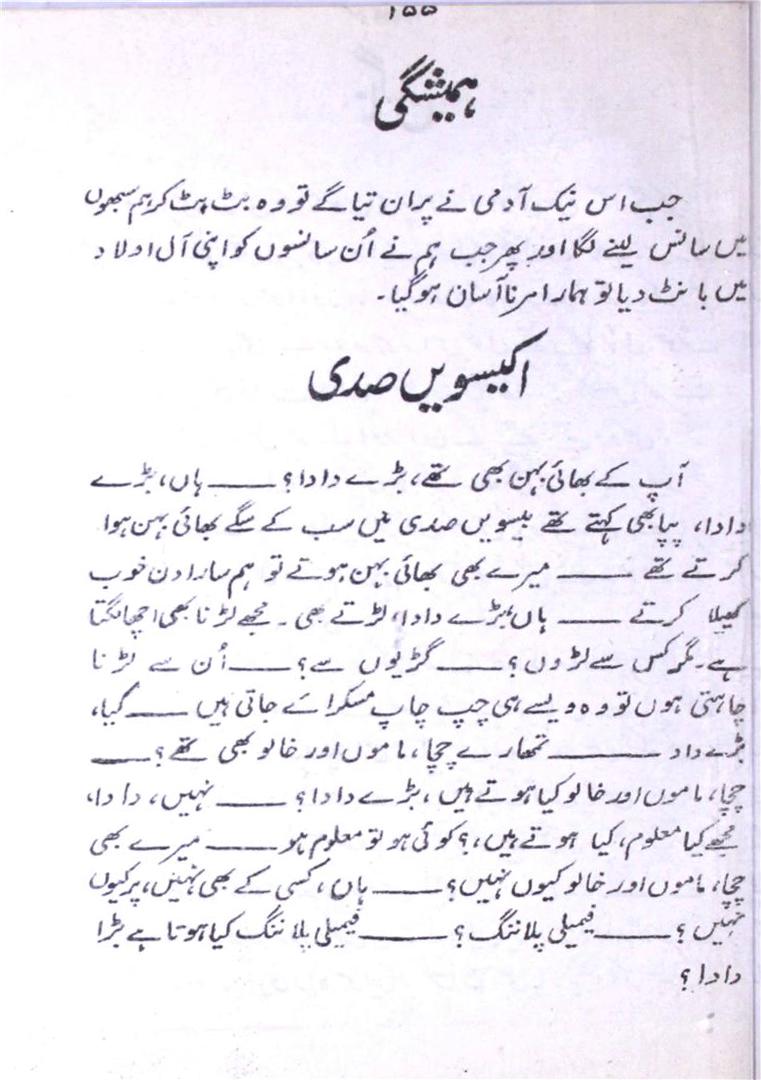 ۱۵۵
ہمیشگی
جب اس نیک آدمی نے پران تیاگے تو وہ بٹ بٹ کر ہم سبھوں
میں سانس لینے لگا اور پھر جب ہم نے اُن سانسوں کو اپنی آل اولاد
میں بانٹ دیا تو ہمارا مرنا آسان ہو گیا۔
اکیسویں صدی
آپ کے بھائی بہن بھی تھے، بڑے دادا؟ ـــــ ہاں، بڑے
دادا، پپا بھی کہتے تھے بیسویں صدی میں سب کے سگے بھائی بہن ہوا
کرتے تھے ـــــ میرے بھی بھائی بہن ہوتے تو ہم سارا دن خوب
کھیلا کرتے ـــــ ہاں بڑے دادا، لڑتے بھی۔ مجھے لڑنا بھی اچھا لگتا
ہے۔ مگر کس سے لڑوں؟ ـــــ گڑیوں سے؟ ـــــ اُن سے لڑنا
چاہتی ہوں تو وہ ویسے ہی چپ چاپ مسکرائے جاتی ہیں ـــــ کیا،
بڑے داد ـــــ تمھارے چچا، ماموں اور خالو بھی تھے؟ ـــــ
چچا، ماموں اور خالو کیا ہوتے ہیں، بڑے دادا؟ ـــــ نہیں، دادا،
مجھے کیا معلوم، کیا ہوتے ہیں،؟ کوئی ہو تو معلوم ہو ـــــ میرے بھی
چچا، ماموں اور خالو کیوں نہیں؟ ـــــ ہاں، کسی کے بھی نہیں، پر کیوں
نہیں؟ ـــــ فیملی پلاننگ؟ ـــــ فیملی پلاننگ کیا ہوتا ہے بڑا
دادا؟